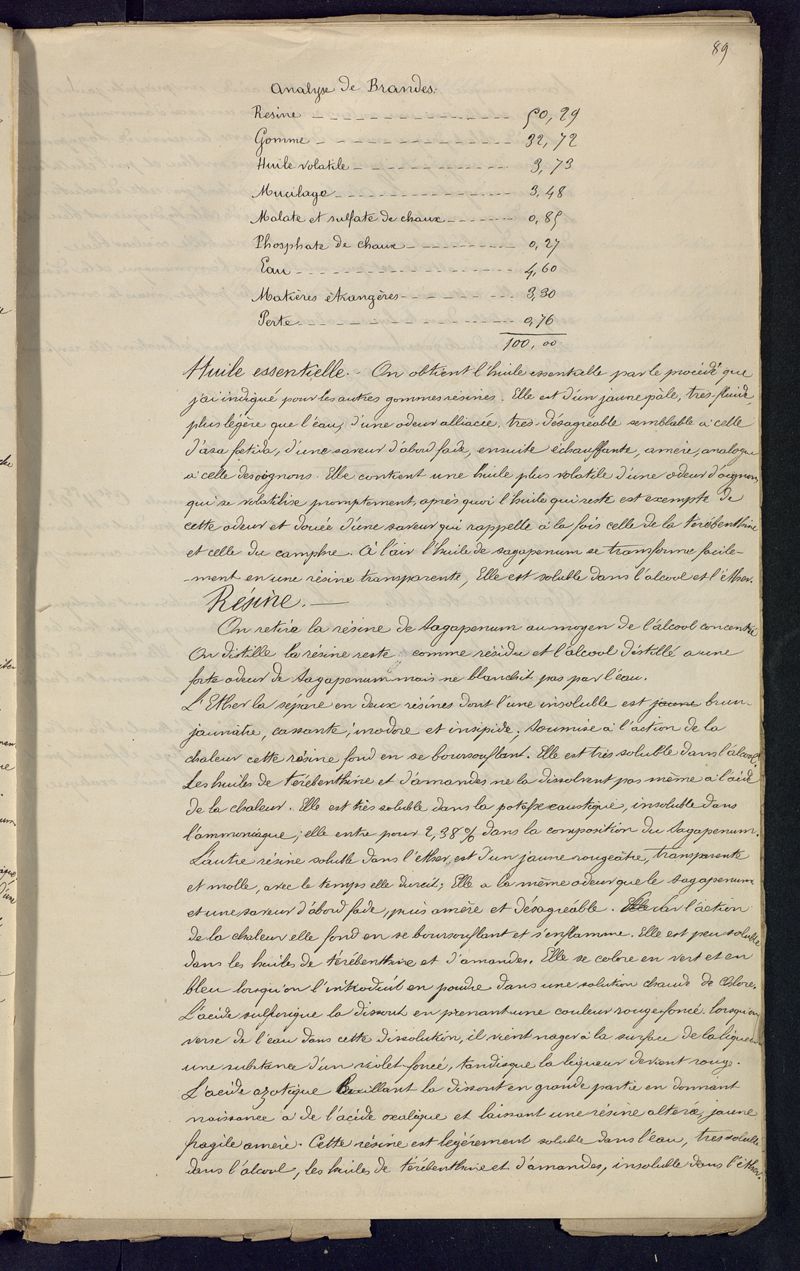 89
Analyse de Brandes.
Résine 50,29
Gomme 32,72
Huile volatile 3,73
Mucilage 3,48
Malate et sulfate de chaux 0,85
Phosphate de chaux 0,27
Eau 4,60
Matières étrangères 3,30
Perte 0,76
100,00
Huile essentielle. - On obtient l'huile essentielle par le procédé que
j'ai indiqué pour les autres gommes résines. Elle est d'un jaune pâle, très-fluide,
plus légère que l'eau, d'une odeur alliacée, très-désagréable semblable à celle
d'asa foetida, d'une saveur d'abord fade, ensuite échauffante, amère, analogue
à celle des oignons. Elle contient une huile plus volatile d'une odeur d'oignon,
qui se volatilise promptement, après quoi l'huile qui reste est exempte de
cette odeur et douée d'une saveur qui rappelle à la fois celle de la térébenthine
et celle du camphre. À l'air l'huile de sagapenum se transforme facile-
-ment en une résine transparente, Elle est soluble dans l'alcool et l'éther.
Résine. —
On retire la résine de Sagapenum au moyen de l'alcool concentré
On distille la résine reste comme résidu et l'alcool distillé a une
forte odeur de Sagapenum mais ne blanchit pas par l'eau.
L'Ether la sépare en deux résines dont l'une insoluble est jaune brun-
jaunâtre, cassante, inodore et insipide. Soumise à l'action de la
chaleur cette résine fond en se boursouflant. Elle est très soluble dans l'alcool.
Les huiles de térébenthine et d'amandes ne la dissolvent pas même à l'aide
de la chaleur. Elle est très soluble dans la potasse caustique, insoluble dans
l'ammoniaque; elle entre pour 2,38 % dans la composition du Sagapenum.
L'autre résine soluble dans l'éther, est d'un jaune rougeâtre, transparente
et molle, avec le temps elle durcit; Elle a la même odeur que le Sagapenum
et une saveur d'abord fade, puis amère et désagréable. Par l'action
de la chaleur elle fond en se boursouflant et s'enflamme. Elle est peu soluble
dans les huiles de térébenthine et d'amandes. Elle se colore en vert et en
bleu lorsqu'on l'introduit en poudre dans une solution chaude de Chlore.
L'acide sulfurique la dissout en prenant une couleur rouge foncé. lorsqu'on
verse de l'eau dans cette dissolution, il vient nager à la surface de la liqueur
une substance d'un violet foncé, tandis que la liqueur devient rouge.
L'acide azotique bouillant la dissout en grande partie en donnant
naissance à de l'acide oxalique et laissant une résine altérée, jaune
fragile amère. Cette résine est légèrement soluble dans l'eau, très soluble
dans l'alcool, les huiles de térébenthine et d'amandes, insoluble dans l'éther.